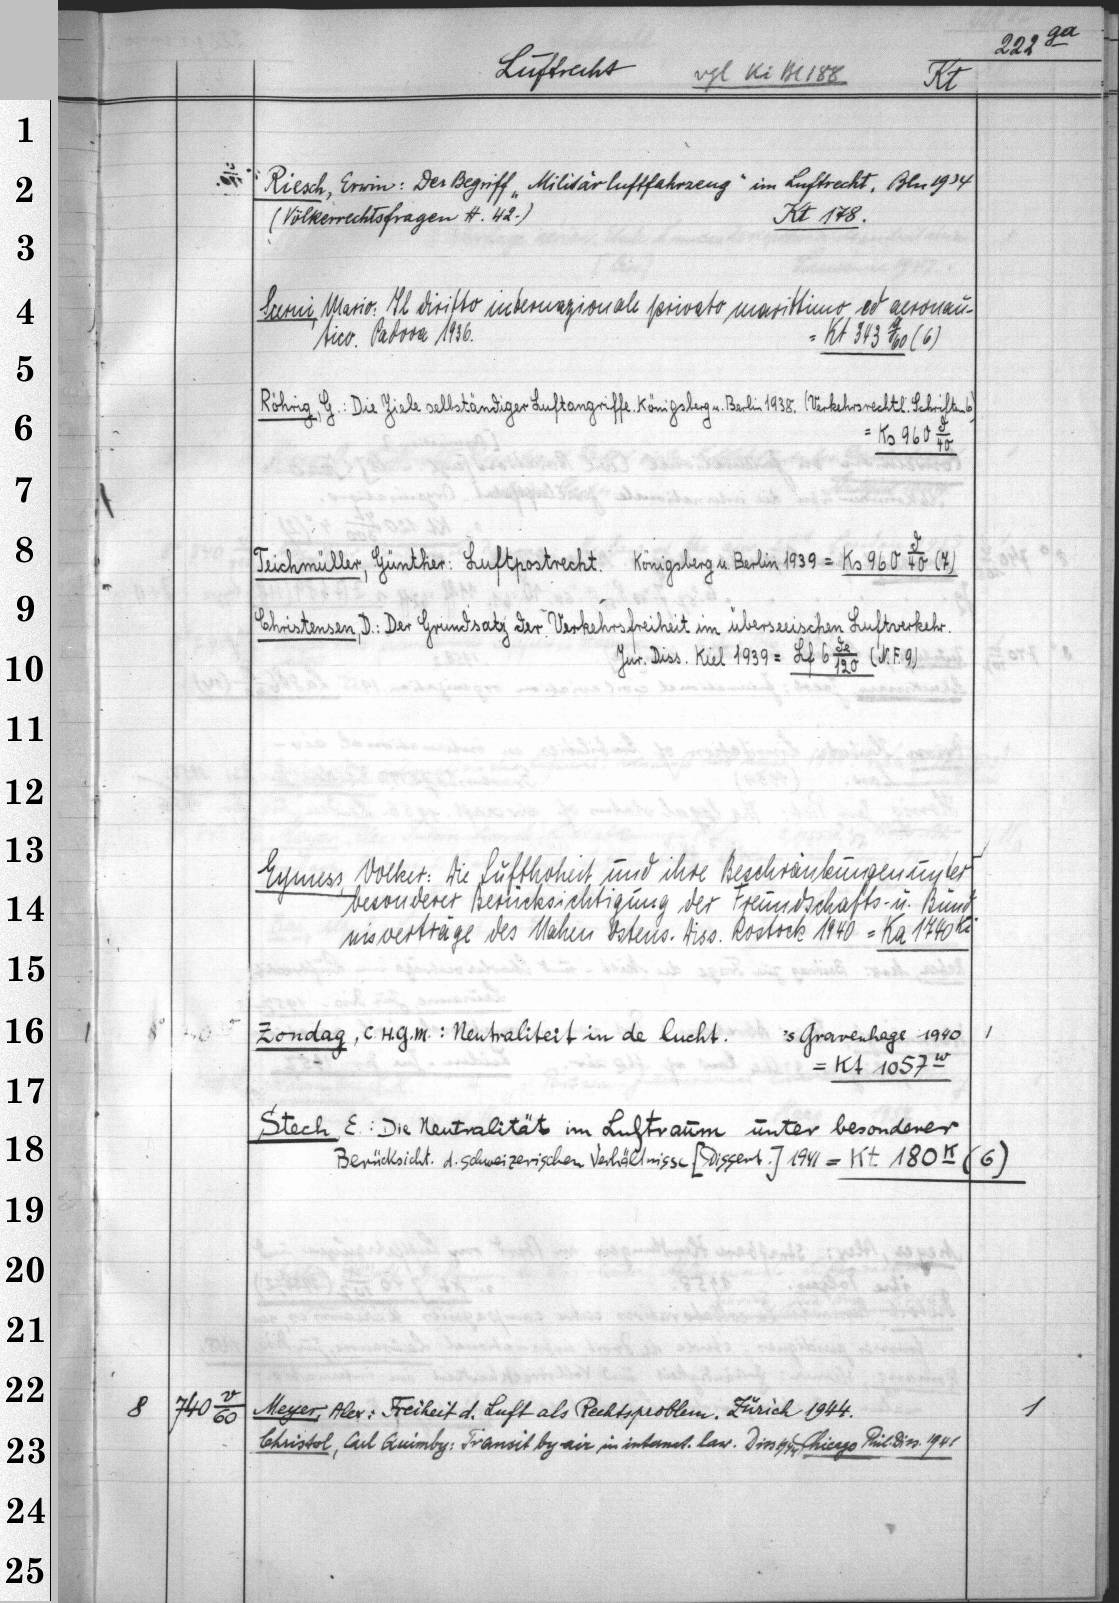 222 ga
Luftrecht vgl Ki Bl 188 Kt
1
2 Riesch, Erwin: Der Begriff „Militärluftfahrzeug“ im Luftrecht. Bln 1934
(Völkerrechtsfragen H. 42.) Kt 178.
3
4 Scerni, Mario: Il diritto internazionale privato marittimo ed aeronau-
tico. Padova 1936. = Kt 343 /60 (6)
5
Röhrig, G.: Die Ziele selbständiger Luftangriffe. Königsberg u. Berlin 1938. (Verkehrsrechtl. Schriften 6)
6 = Ks 960 d/40
7
8 Teichmüller, Günther: Luftpostrecht. Königsberg u. Berlin 1939 = Ks 960 d/40 (7)
9 Christensen, D.: Der Grundsatz der Verkehrsfreiheit im überseeischen Luftverkehr.
10 Jur. Diss. Kiel 1939 = Lf 6 /120 (N.F. 9)
11
12
13 Eymess, Volker: Die Lufthoheit und ihre Beschränkungen unter
14 besonderer Berücksichtigung der Freundschafts- u. Bünd
nisverträge des Nahen Ostens. Diss. Rostock 1940 = Ka 1740 Ki
15
16 Zondag, C.H.G.M.: Neutraliteit in de lucht. 's Gravenhage 1940 1
= Kt 1057 w
17
Stech, E.: Die Neutralität im Luftraum unter besonderer
18 Berücksicht. d. schweizerischen Verhältnisse [Dissert.] 1941 = Kt 180 K (6)
19
20
21
22 8 740 v/60 Meyer, Alex: Freiheit d. Luft als Rechtsproblem. Zürich 1944. 1
23 Christol, Carl Quimby: Transit by air in internat. law. Diss Chicago Phil. Diss. 1941
24
25